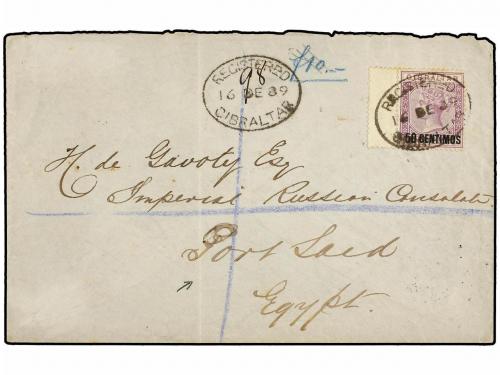 £10.-
REGISTERED
98
16 DE 89
GIBRALTAR
GIBRALTAR
REGISTERED
16 DE
50 CENTIMOS
H. de Gavoty Esq
Imperial Russian Consulate
Port Said
Egypt.